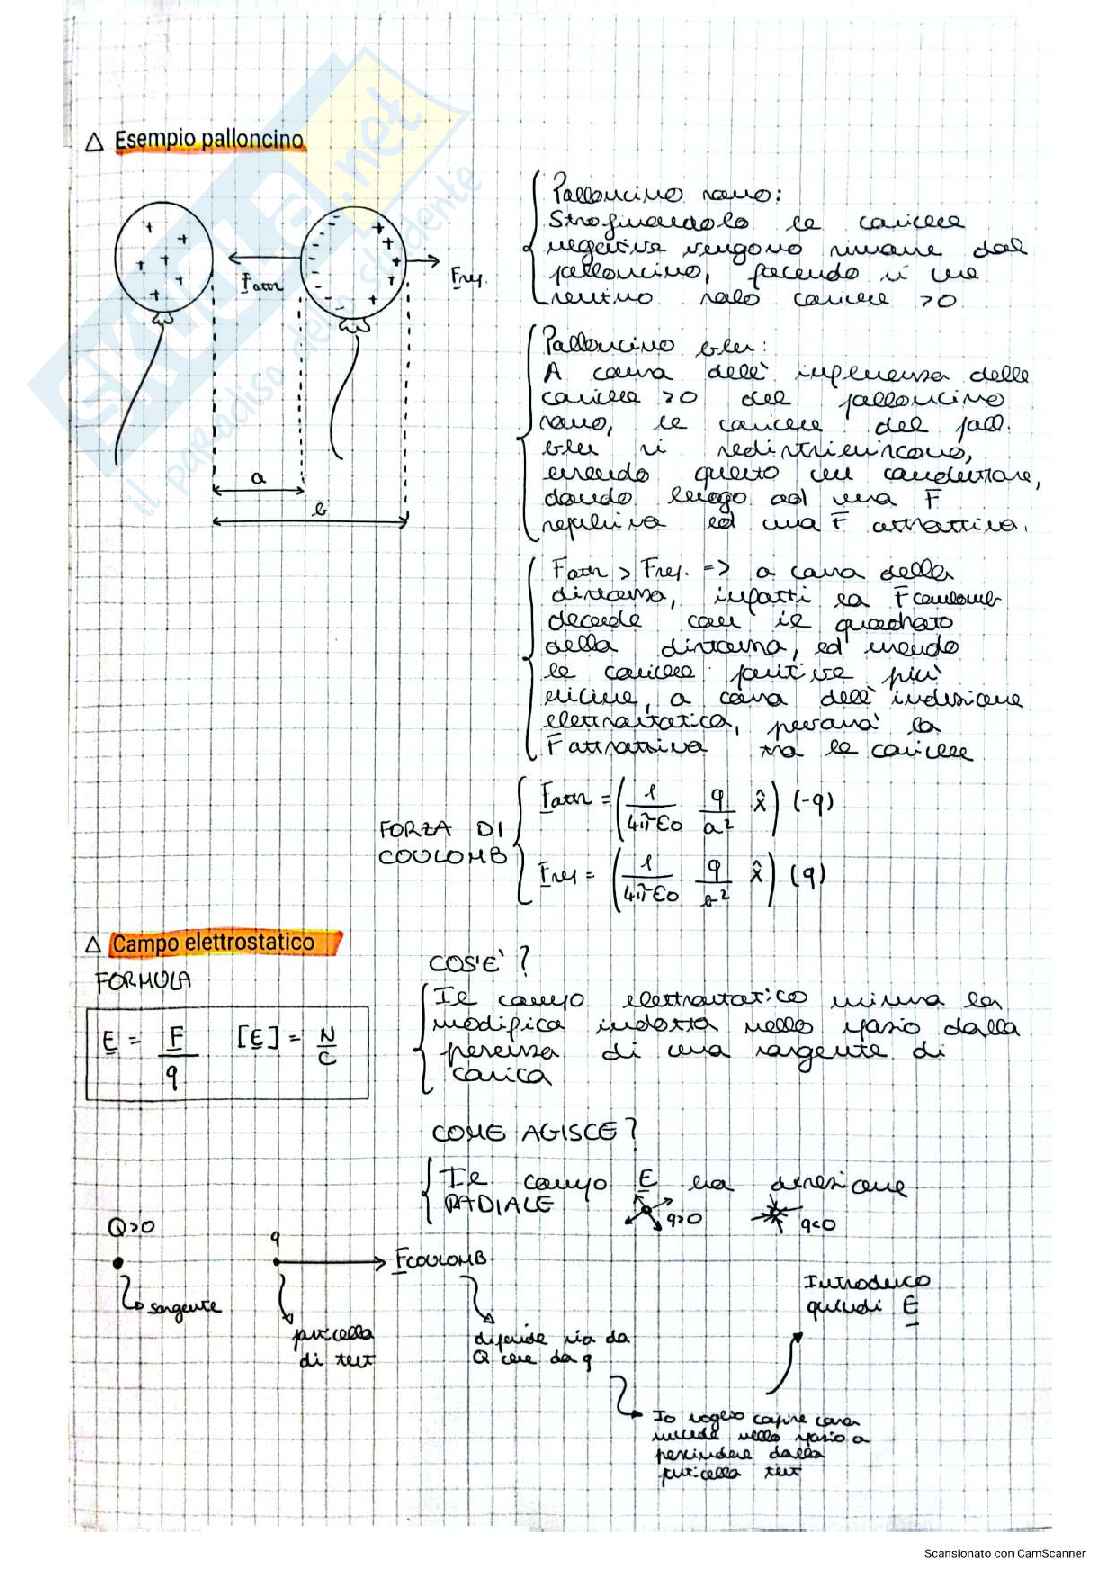 △ Esempio palloncino
Palloncino rosso:
Strofinandolo le cariche
negative vengono rimosse dal
palloncino, facendo si che
restino solo cariche >0
+ + + + + + +
- - - - - - - + + + + +
F attr
F rep.
Palloncino blu:
A causa dell' influenza delle
cariche >0 del palloncino
rosso, le cariche del pall.
blu si redistribuiscono,
essendo questo un conduttore,
dando luogo ad una F
repulsiva ed una F attrattiva.
a
b
F attr > F rep. => a causa della
distanza, infatti la F coulomb
decade con il quadrato
della distanza, ed essendo
le cariche positive più
vicine, a causa dell' induzione
elettrostatica, peserà la
F attrattiva tra le cariche
FORZA DI
COULOMB
F attr = (1/4πε0 q/a² x̂) (-q)
F rep = (1/4πε0 q/b² x̂) (q)
△ Campo elettrostatico
FORMULA
E = F/q [E] = N/C
COS'E' ?
Il campo elettrostatico misura la
modifica indotta nello spazio dalla
presenza di una sorgente di
carica
COME AGISCE?
Il campo E ha direzione
RADIALE q>0 q<0
Q>0
q
F COULOMB
sorgente
particella
di test
dipende sia da
Q che da q
Introduco
quindi E
Io voglio capire cosa
succede nello spazio a
prescindere dalla
particella test
Scansionato con CamScanner
SKUOLA.net
il paradiso dello studente